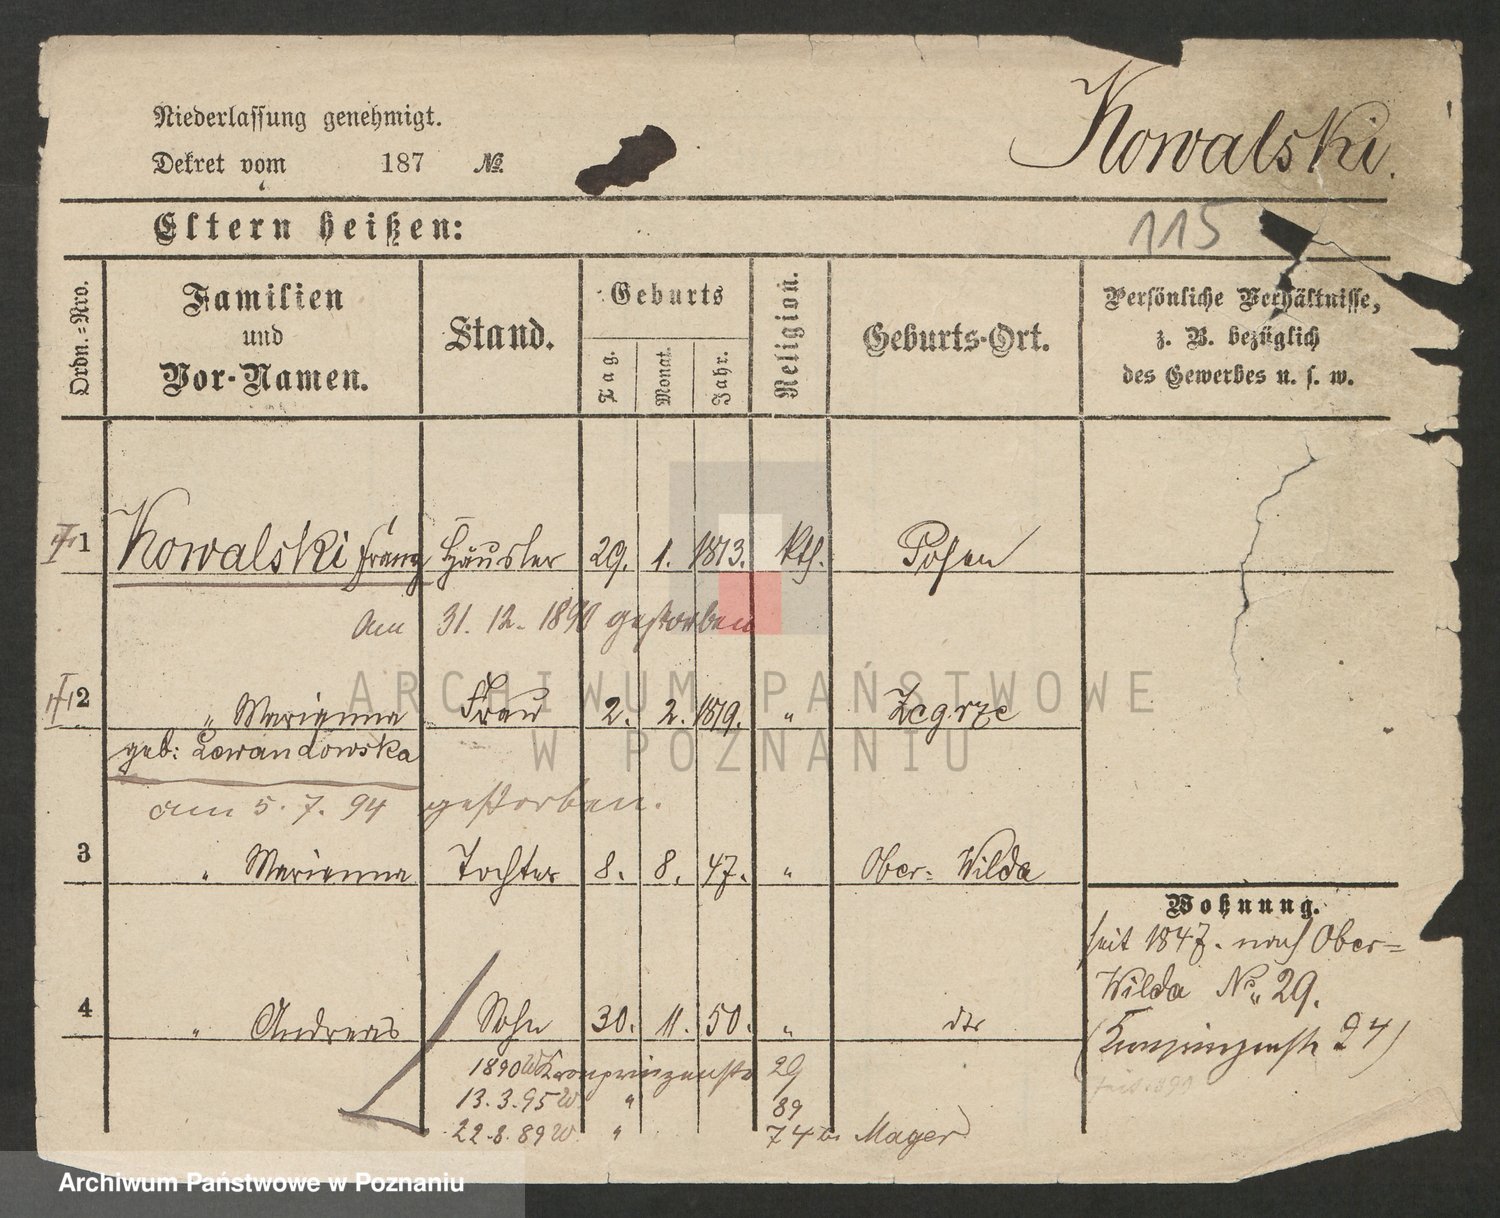 Niederlassung genehmigt.
Kowalski.
Dekret vom 187 №
Eltern heißen:
115
Ordn.=Nro.
Familien und Vor-Namen.
Stand.
Geburts
Tag.
Monat.
Jahr.
Religion.
Geburts-Ort.
Persönliche Verhältnisse,
z. B. bezüglich
des Gewerbes u. s. w.
1 Kowalski Franz Häusler 29. 1. 1813. kth. Posen
Am 31. 12. 1890 gestorben
2 " Marianna Frau 2. 2. 1819. " Zegrze
geb: Lewandowska
am 5. 7. 94 gestorben.
3 " Marianna Tochter 8. 8. 47. " Ober- Wilda
Wohnung.
seit 1847. nach Ober=
Wilda No. 29.
4 " Andreas Sohn 30. 11. 50. " dto
(Kronprinzenstr 24)
1890 W Kronprinzenstr 29
13. 3. 95 W " 89
22. 8. 89 W " 74 b. Mager
ARCHIWUM PAŃSTWOWE
W POZNANIU
Archiwum Państwowe w Poznaniu